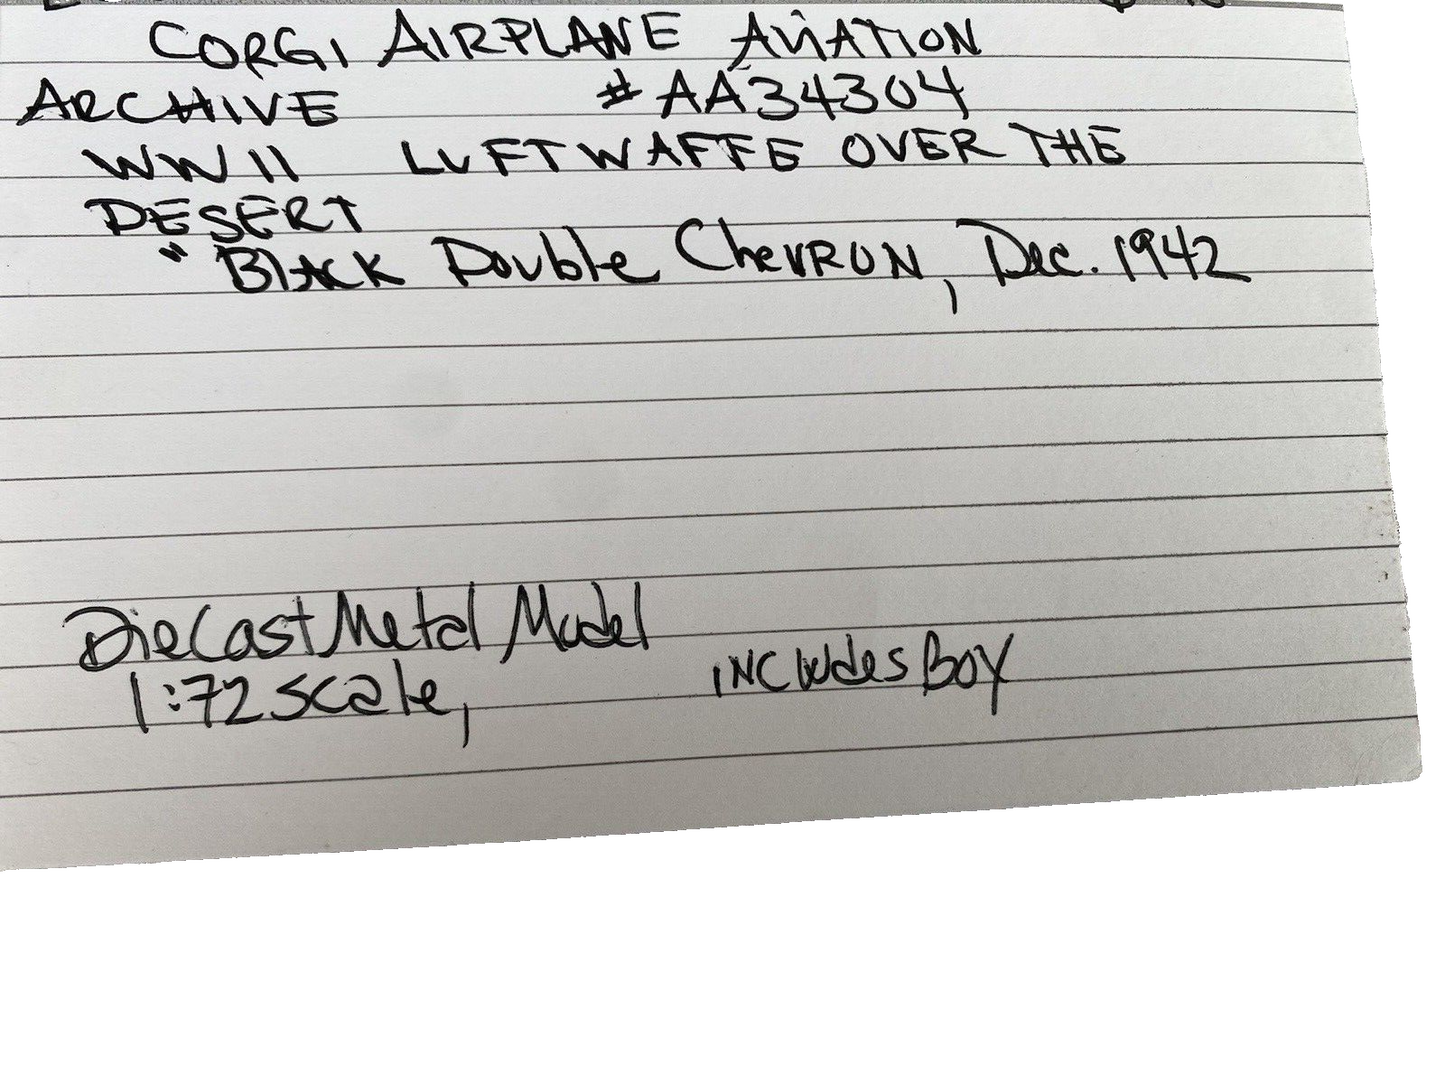 CORGI AIRPLANE AVIATION
ARCHIVE # AA34304
WW II LUFTWAFFE OVER THE
DESERT
" Black Double Chevron, Dec. 1942
DieCast Metal Model
1:72 scale, includes Box